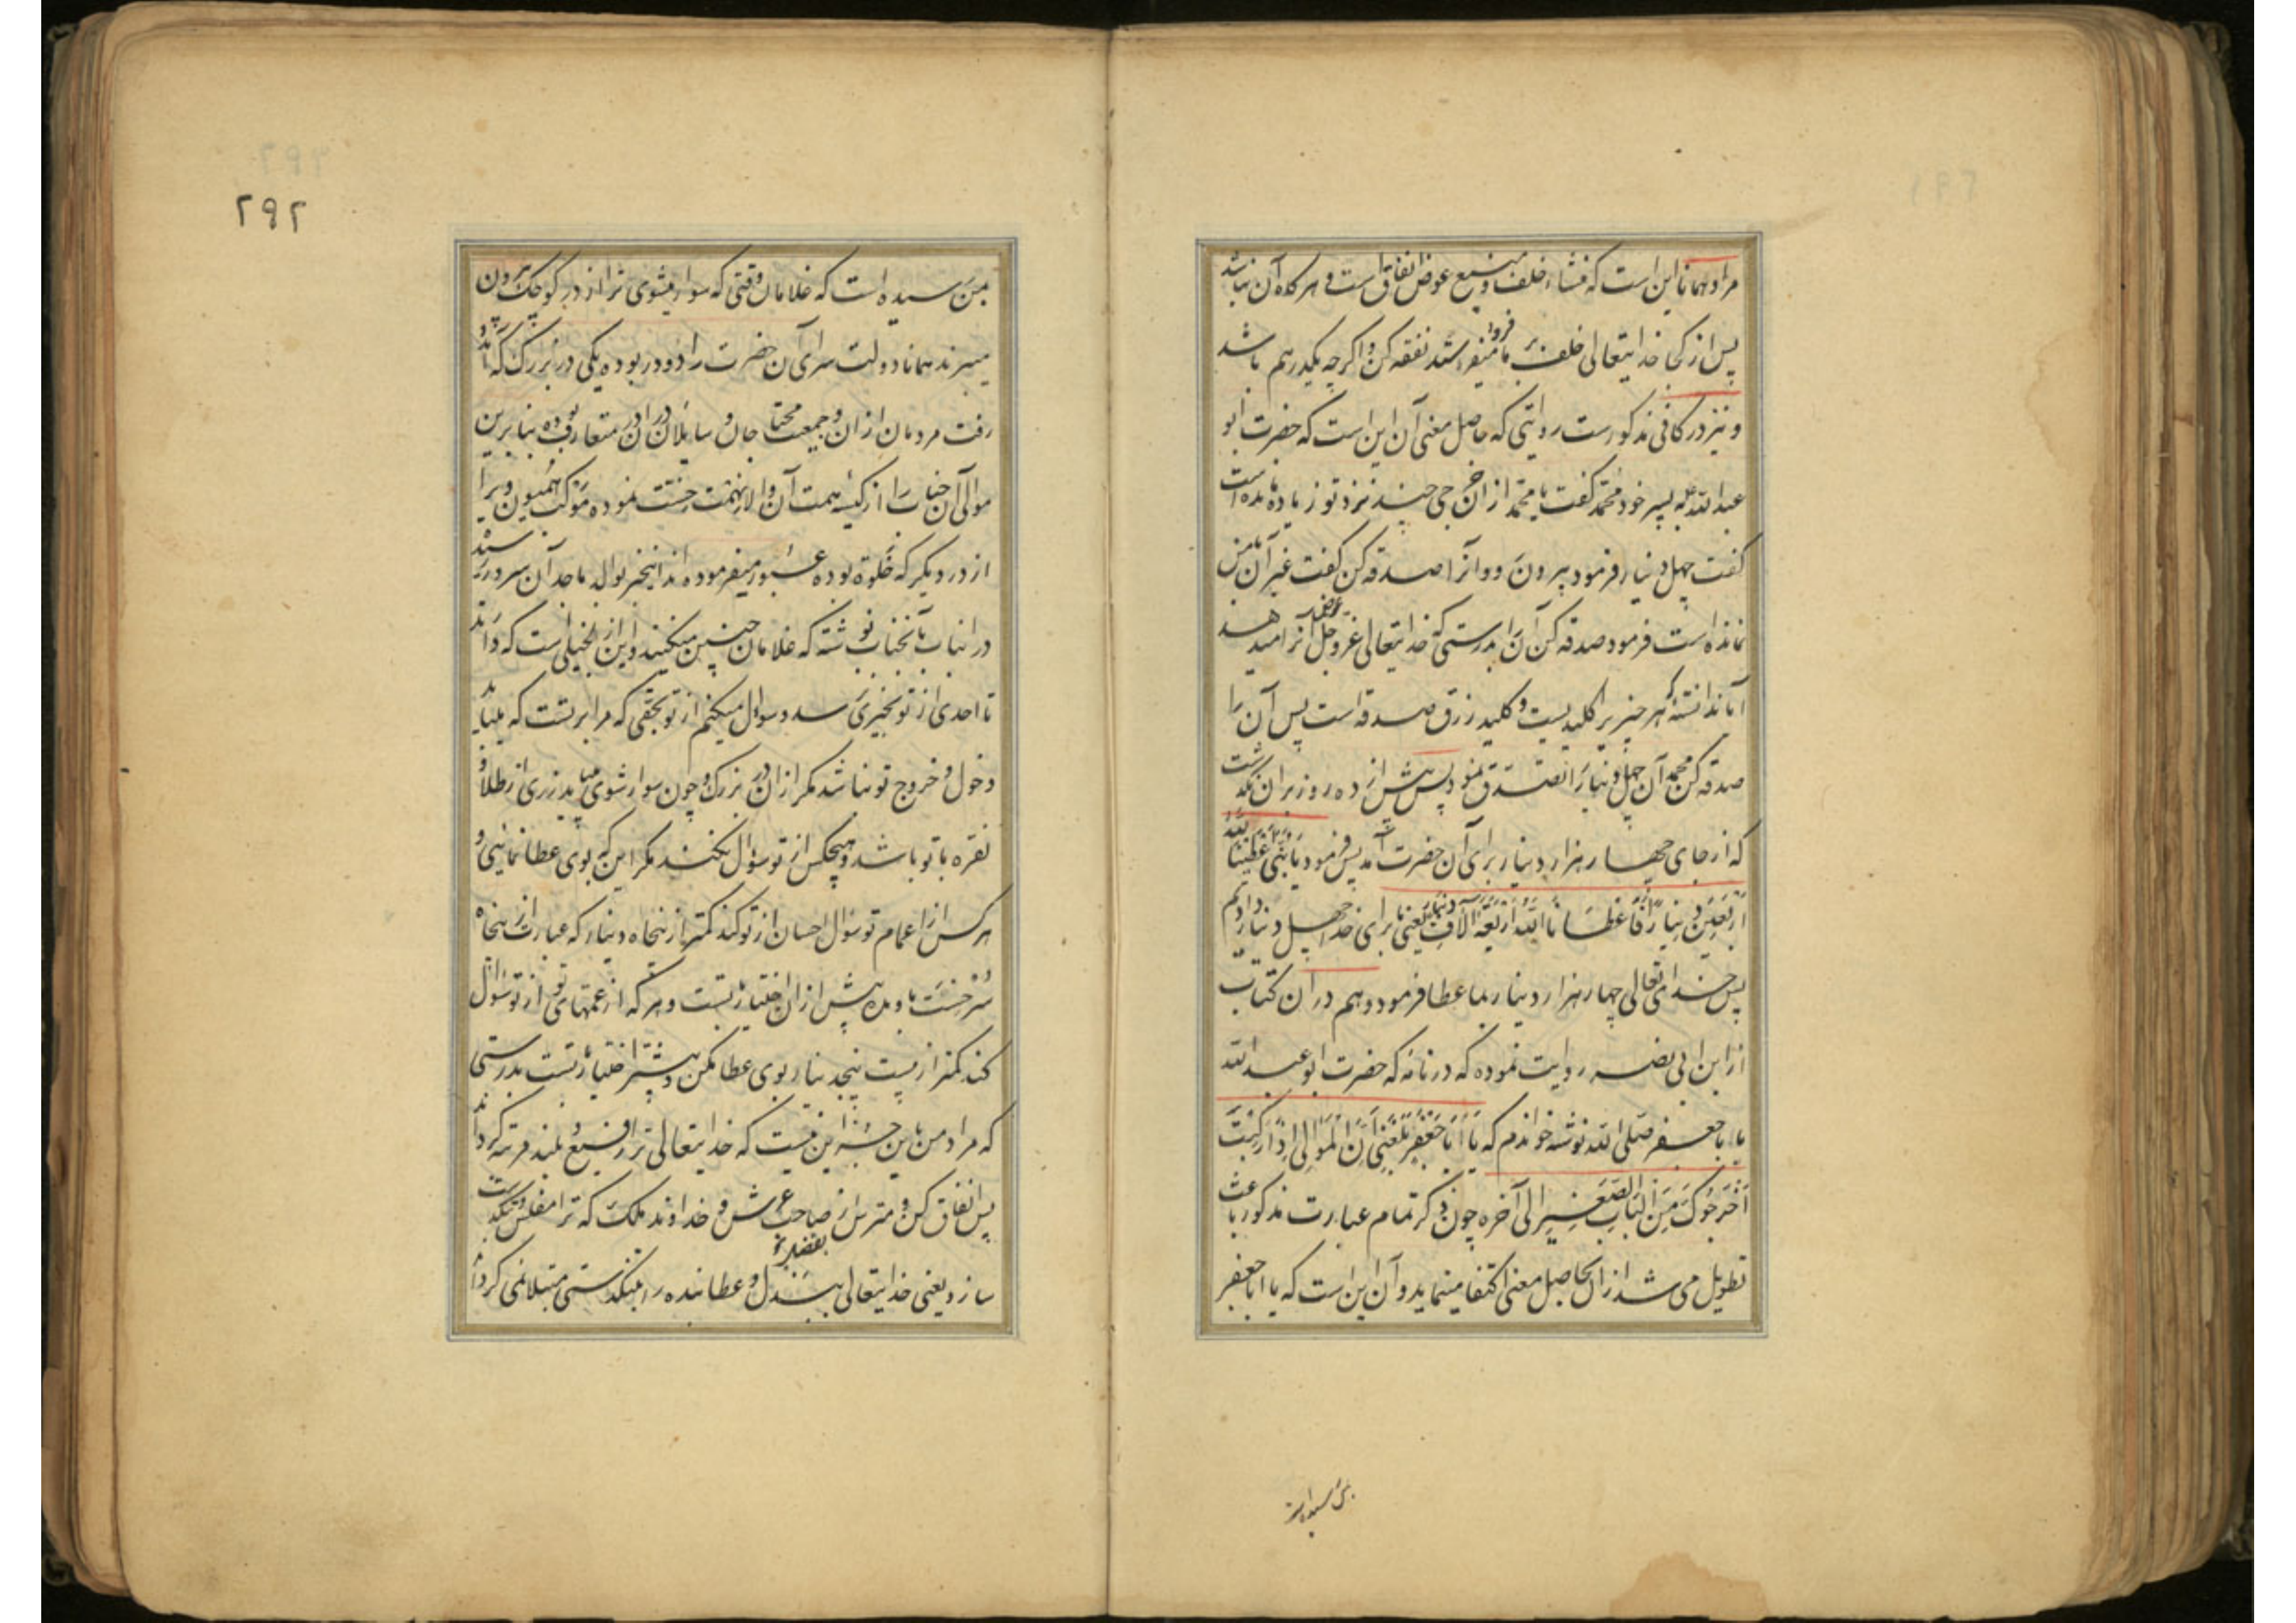 مراد همانا این است که منشاء خلف و منبع عوض انفاق است و هر گاه آن نباشد
پس از کجا خدایتعالی خلف بر ما میفرستد نفقه کن و اگرچه یکدرهم باشد
و نیز در کافی مذکور است روایتی که حاصل معنی آن این است که حضرت ابو
عبدالله به پسر خود محمد گفت یا محمد از آن خرجی چند نزد تو زیاده مانده است
گفت چهل دینار فرمود بیرون رو و آنرا صدقه کن گفت غیر آن با من
نمانده است فرمود صدقه کن آن را بدرستی که خدایتعالی عز و جل عوض آنرا میدهد
آیا ندانسته که هر چیز را کلید یست و کلید رزق صدقه است پس آن را
صدقه کن محمد آن چهل دینار را تصدق نمود پس بیش از ده روز بران نگذشت
که از جای چهار هزار دینار برای آن حضرت آمد پس فرمود یا بنی اعطینا لله
اربعین دینارا فاعطانا الله اربعة آلاف دینار یعنی ما برای خدا چهل دینار دادیم
پس خدای تعالی چهار هزار دینار بما عطا فرمود و هم در آن کتاب
از ابن ابی نصر روایت نموده که در نامه که حضرت ابو عبدالله
با با جعفر صلی الله نوشته خواندم که یا ابا جعفر بلغنی ان الموالی اذا رکبت
اخرجوک من الباب الصغیر الی آخره چون ذکر تمام عبارت مذکور باعث
تطویل می شد از ان بحاصل معنی اکتفا مینماید و آن این است که یا ابا جعفر
بمن رسیده است
۲۹۲
بمن رسیده است که غلامان وقتی که سوار میشوی ترا از در کوچک بیرون
میبرند همانا دولت سرای آن حضرت را دو در بوده یکی در بزرگ که آمد و
رفت مردمان از ان و جمعیت محتاجان و سایلان در آن در متعارف بوده بنابرین
موالی آن جناب را از کیسه همت آن والا نهمت خست نموده موکب همیون ویرا
از در دیگر که خلوة بوده عبور میفرموده اند اینخبر بوالد ماجد آن سرور رسیده
در انباب بآنجناب نوشته که غلامان چنین میکنند و این از بخیلی است که دارند
تا احدی از تو بخیری نرسد و سوال میکنم از تو بحقی که مرا بر تست که میباید
دخول و خروج تو نباشد مگر از ان در بزرگ و چون سوار شوی میباید زری از طلا و
نقره با تو باشد و هیچکس از تو سؤال نکند مگر این که بوی عطا نمائی و
هر کس از اعمام تو سؤال احسان از تو کند کمتر از پنجاه دینار که عبارت از پنجاه
شرخست باو مده بیش از ان اختیار تست و هر که از عمتهای تو از تو سؤال
کند کمتر از بیست پنجدینار بوی عطا مکن و بیشتر اختیار تست بدرستی
که مراد من باین جز این نیست که خدایتعالی ترا رفیع و بلند مرتبه گرداند
پس انفاق کن و مترس از صاحب عرش و خداوند ملک که ترا مفلس و تنگدست
سازد یعنی خدایتعالی بسبب بذل و عطا بنده را بتنگدستی مبتلا نمی گرداند